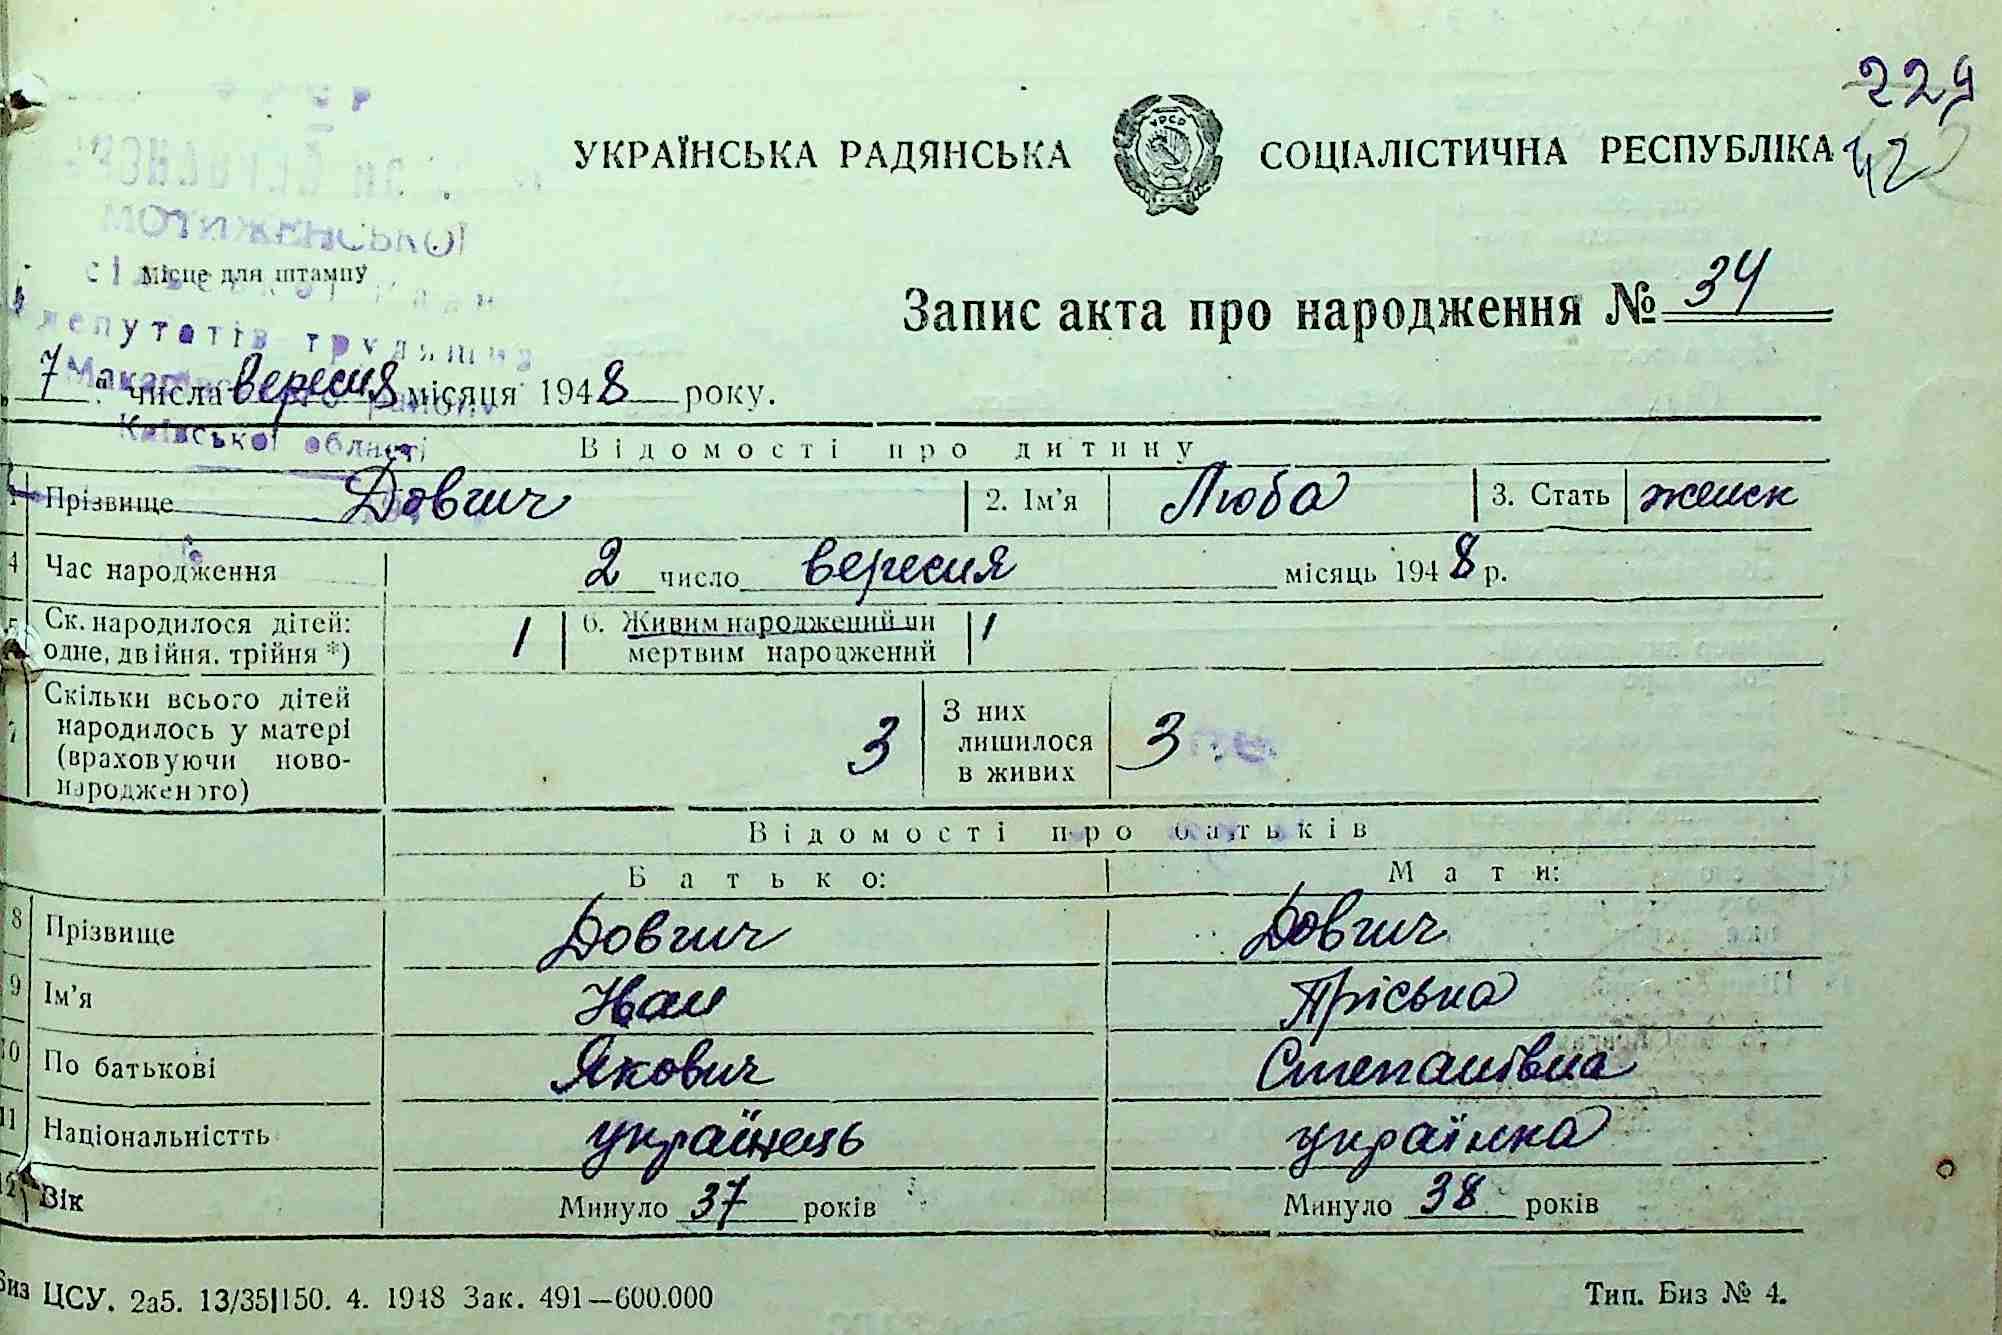 229
УКРАЇНСЬКА РАДЯНСЬКА СОЦІАЛІСТИЧНА РЕСПУБЛІКА
УРСР
42
МОТИЖЕНСЬКОЇ
Місце для штампу
депутатів трудящих
Київської області
Запис акта про народження № 34
7 числа вересня місяця 1948 року.
Відомості про дитину
1 Прізвище Довгич 2. Ім'я Люба 3. Стать женск
4 Час народження 2 число вересня місяць 1948 р.
5 Ск. народилося дітей: одне, двійня, трійня *) 1 6. Живим народжений чи мертвим народжений 1
7 Скільки всього дітей народилось у матері (враховуючи ново-народженого) 3 З них лишилося в живих 3
Відомості про батьків
Батько: Мати:
8 Прізвище Довгич Довгич
9 Ім'я Иван Пріська
10 По батькові Якович Степанівна
11 Національністть українець українка
12 Вік Минуло 37 років Минуло 38 років
Биз ЦСУ. 2а5. 13/35|150. 4. 1948 Зак. 491—600.000 Тип. Биз № 4.